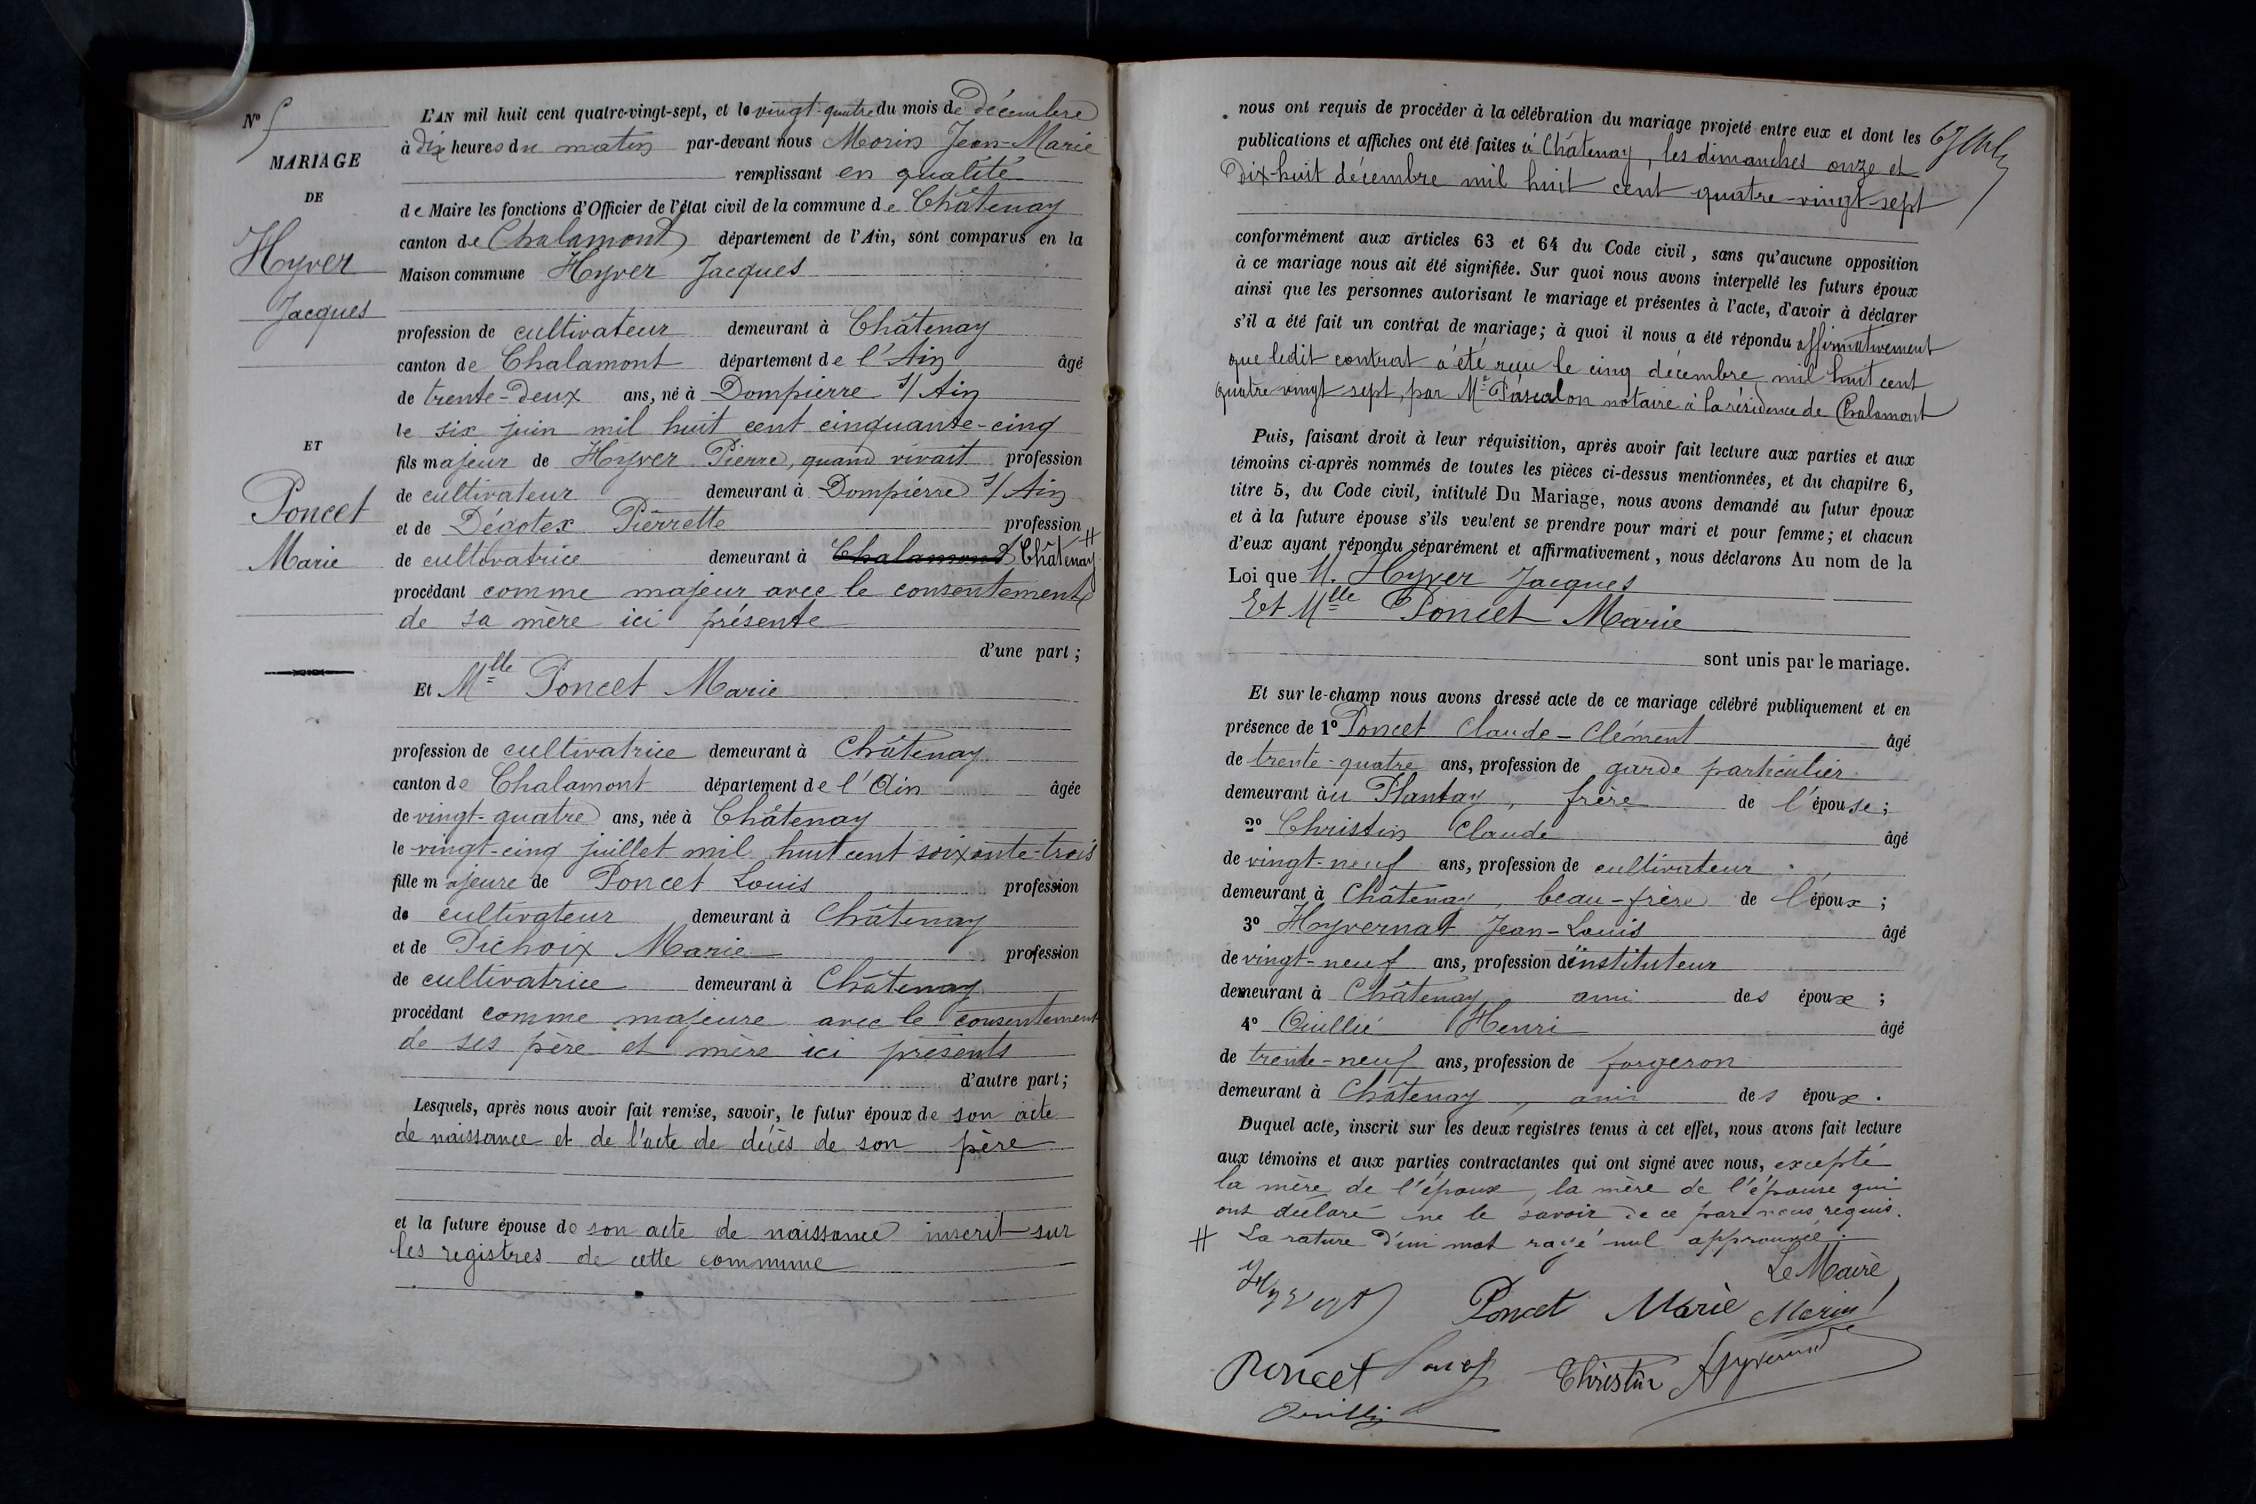 N° 5
MARIAGE
DE
Hyver
Jacques
ET
Poncet
Marie
L'AN mil huit cent quatre-vingt-sept, et le vingt-quatre du mois de décembre
à dix heures du matin par-devant nous Morin Jean-Marie
remplissant en qualité
de Maire les fonctions d'Officier de l'état civil de la commune de Châtenay
canton de Chalamont département de l'Ain, sont comparus en la
Maison commune Hyver Jacques
profession de cultivateur demeurant à Châtenay
canton de Chalamont département de l'Ain âgé
de trente-deux ans, né à Dompierre s/ Ain
le six juin mil huit cent cinquante-cinq
fils majeur de Hyver Pierre, quand vivait profession
de cultivateur demeurant à Dompierre s/ Ain
et de Dégotex Pierrette profession
de cultivatrice demeurant à Chalamont Châtenay #
procédant comme majeur avec le consentement
de sa mère ici présente
d'une part ;
Et Mlle Poncet Marie
profession de cultivatrice demeurant à Châtenay
canton de Chalamont département de l'Ain âgée
de vingt-quatre ans, née à Châtenay
le vingt-cinq juillet mil huit cent soixante-trois
fille majeure de Poncet Louis profession
de cultivateur demeurant à Châtenay
et de Pichoix Marie profession
de cultivatrice demeurant à Châtenay
procédant comme majeure avec le consentement
de ses père et mère ici présents
d'autre part ;
Lesquels, après nous avoir fait remise, savoir, le futur époux de son acte
de naissance et de l'acte de décès de son père
et la future épouse de son acte de naissance inscrit sur
les registres de cette commune
nous ont requis de procéder à la célébration du mariage projeté entre eux et dont les
publications et affiches ont été faites à Châtenay, les dimanches onze et
dix-huit décembre mil huit cent quatre-vingt-sept
conformément aux articles 63 et 64 du Code civil, sans qu'aucune opposition
à ce mariage nous ait été signifiée. Sur quoi nous avons interpellé les futurs époux
ainsi que les personnes autorisant le mariage et présentes à l'acte, d'avoir à déclarer
s'il a été fait un contrat de mariage ; à quoi il nous a été répondu affirmativement
que ledit contrat a été reçu le cinq décembre mil huit cent
quatre vingt sept, par Me Pascalon notaire à la résidence de Chalamont
Puis, faisant droit à leur réquisition, après avoir fait lecture aux parties et aux
témoins ci-après nommés de toutes les pièces ci-dessus mentionnées, et du chapitre 6,
titre 5, du Code civil, intitulé Du Mariage, nous avons demandé au futur époux
et à la future épouse s'ils veulent se prendre pour mari et pour femme ; et chacun
d'eux ayant répondu séparément et affirmativement, nous déclarons Au nom de la
Loi que M. Hyver Jacques
Et Mlle Poncet Marie
sont unis par le mariage.
Et sur-le-champ nous avons dressé acte de ce mariage célébré publiquement et en
présence de 1° Poncet Claude-Clément âgé
de trente-quatre ans, profession de garde particulier
demeurant au Plantay, frère de l'épouse ;
2° Christin Claude âgé
de vingt-neuf ans, profession de cultivateur
demeurant à Châtenay, beau-frère de l'époux ;
3° Hyvernat Jean-Louis âgé
de vingt-neuf ans, profession d'instituteur
demeurant à Châtenay, ami des époux ;
4° Quillié Henri âgé
de trente-neuf ans, profession de forgeron
demeurant à Châtenay, ami des époux.
Duquel acte, inscrit sur les deux registres tenus à cet effet, nous avons fait lecture
aux témoins et aux parties contractantes qui ont signé avec nous, excepté
la mère de l'époux, la mère de l'épouse qui
ont déclaré ne le savoir de ce par nous requis.
# La rature d'un mot rayé nul approuvée.
Le Maire
Poncet Marie Morin
Poncet Christin Hyvernat